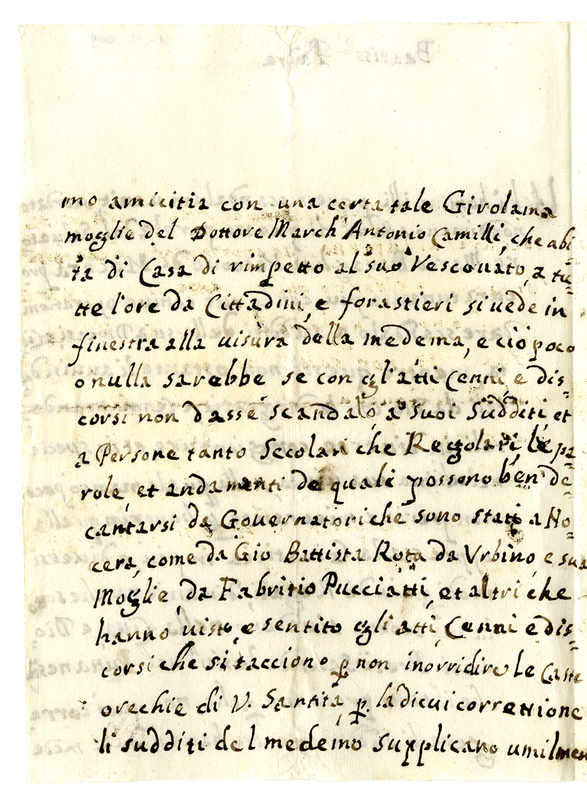 mo amicitia con una certa tale Girolama
moglie del Dottore March' Antonio Camilli, che abi
ta di Casa di rimpetto al suo Vescovato, a tu=
tte l'ore da Cittadini, e forastieri si vede in
finestra alla visura della medema, e ciò poco
o nulla sarebbe se con gl'atti Cenni e dis=
corsi non dasse scandalo a suoi sudditi et
a Persone tanto Secolari che Regolari le pa=
role, et andamenti de quali possono ben de=
cantarsi da Governatori che sono stati a No=
cera, come da Gio Battista Rota da Urbino e sua
Moglie da Fabritio Pucciatti, et altri che
hanno visto, e sentito gli atti, Cenni e dis=
corsi che si tacciono p non inorridire le Caste
orechie di V. Santità, p. la di cui corretione
li sudditi del medemo supplicano umilmen